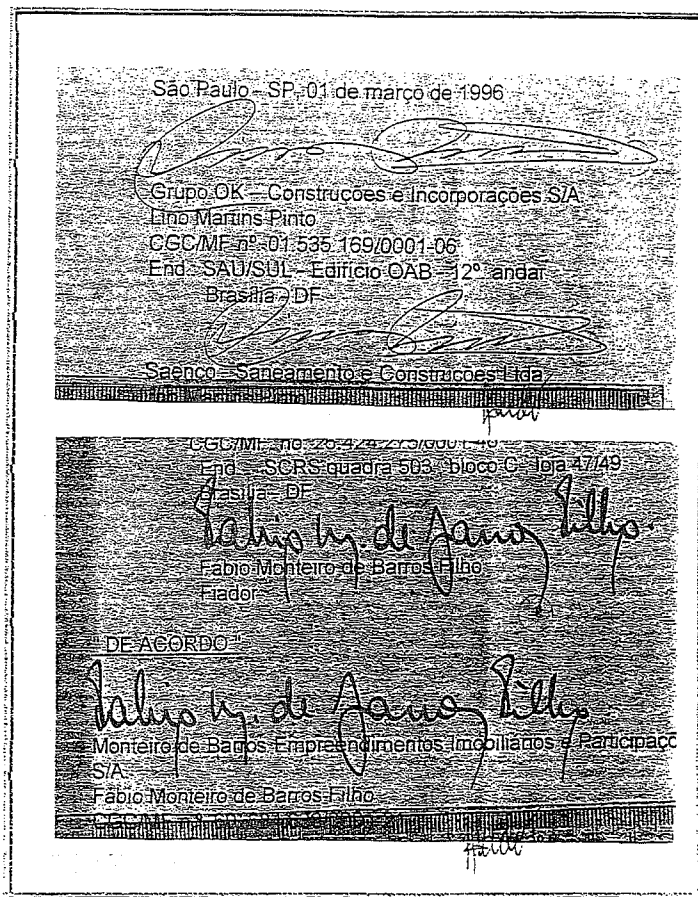 São Paulo - SP, 01 de março de 1996
Grupo OK - Construções e Incorporações S/A
Lino Martins Pinto
CGC/MF nº 01.535.169/0001-06
End. SAU/SUL - Edifício OAB - 12º andar
Brasília - DF
Saenco - Saneamento e Construções Ltda
CGC/MF no. 26.424.275/0001-40
End. SCRS quadra 503, bloco C, loja 47/49
Brasília - DF
Fabio M. de Barros Filho.
Fábio Monteiro de Barros Filho
Fiador
"DE ACORDO"
Fabio M. de Barros Filho
Monteiro de Barros Empreendimentos Imobiliários e Participaçõ
S/A
Fábio Monteiro de Barros Filho
CGC/MF